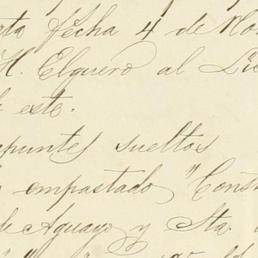 ta fecha 4 de No
H. Elguero al Li
de este.
apuntes sueltos
empastado "Cons
de Aguayo y Sta.